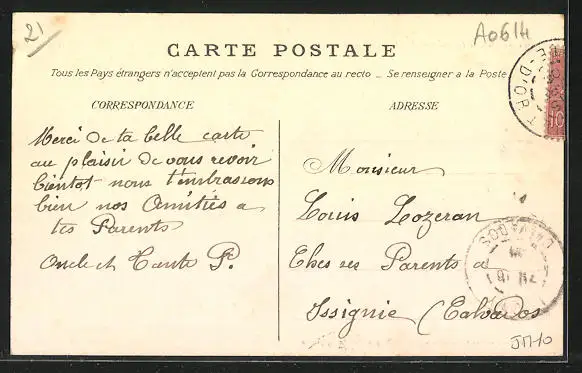 21
A0614
CARTE POSTALE
Tous les Pays étrangers n'acceptent pas la Correspondance au recto _ Se renseigner a la Poste
CORRESPONDANCE
ADRESSE
Merci de ta belle carte
au plaisir de vous revoir
bientot nous t'embrassons
bien nos Amitiés a
tes Parents
Oncle et Tante P.
Monsieur
Louis Lozeran
Ches ses Parents a
Issignie (Calvados
CALVADOS
E-D'OR
10